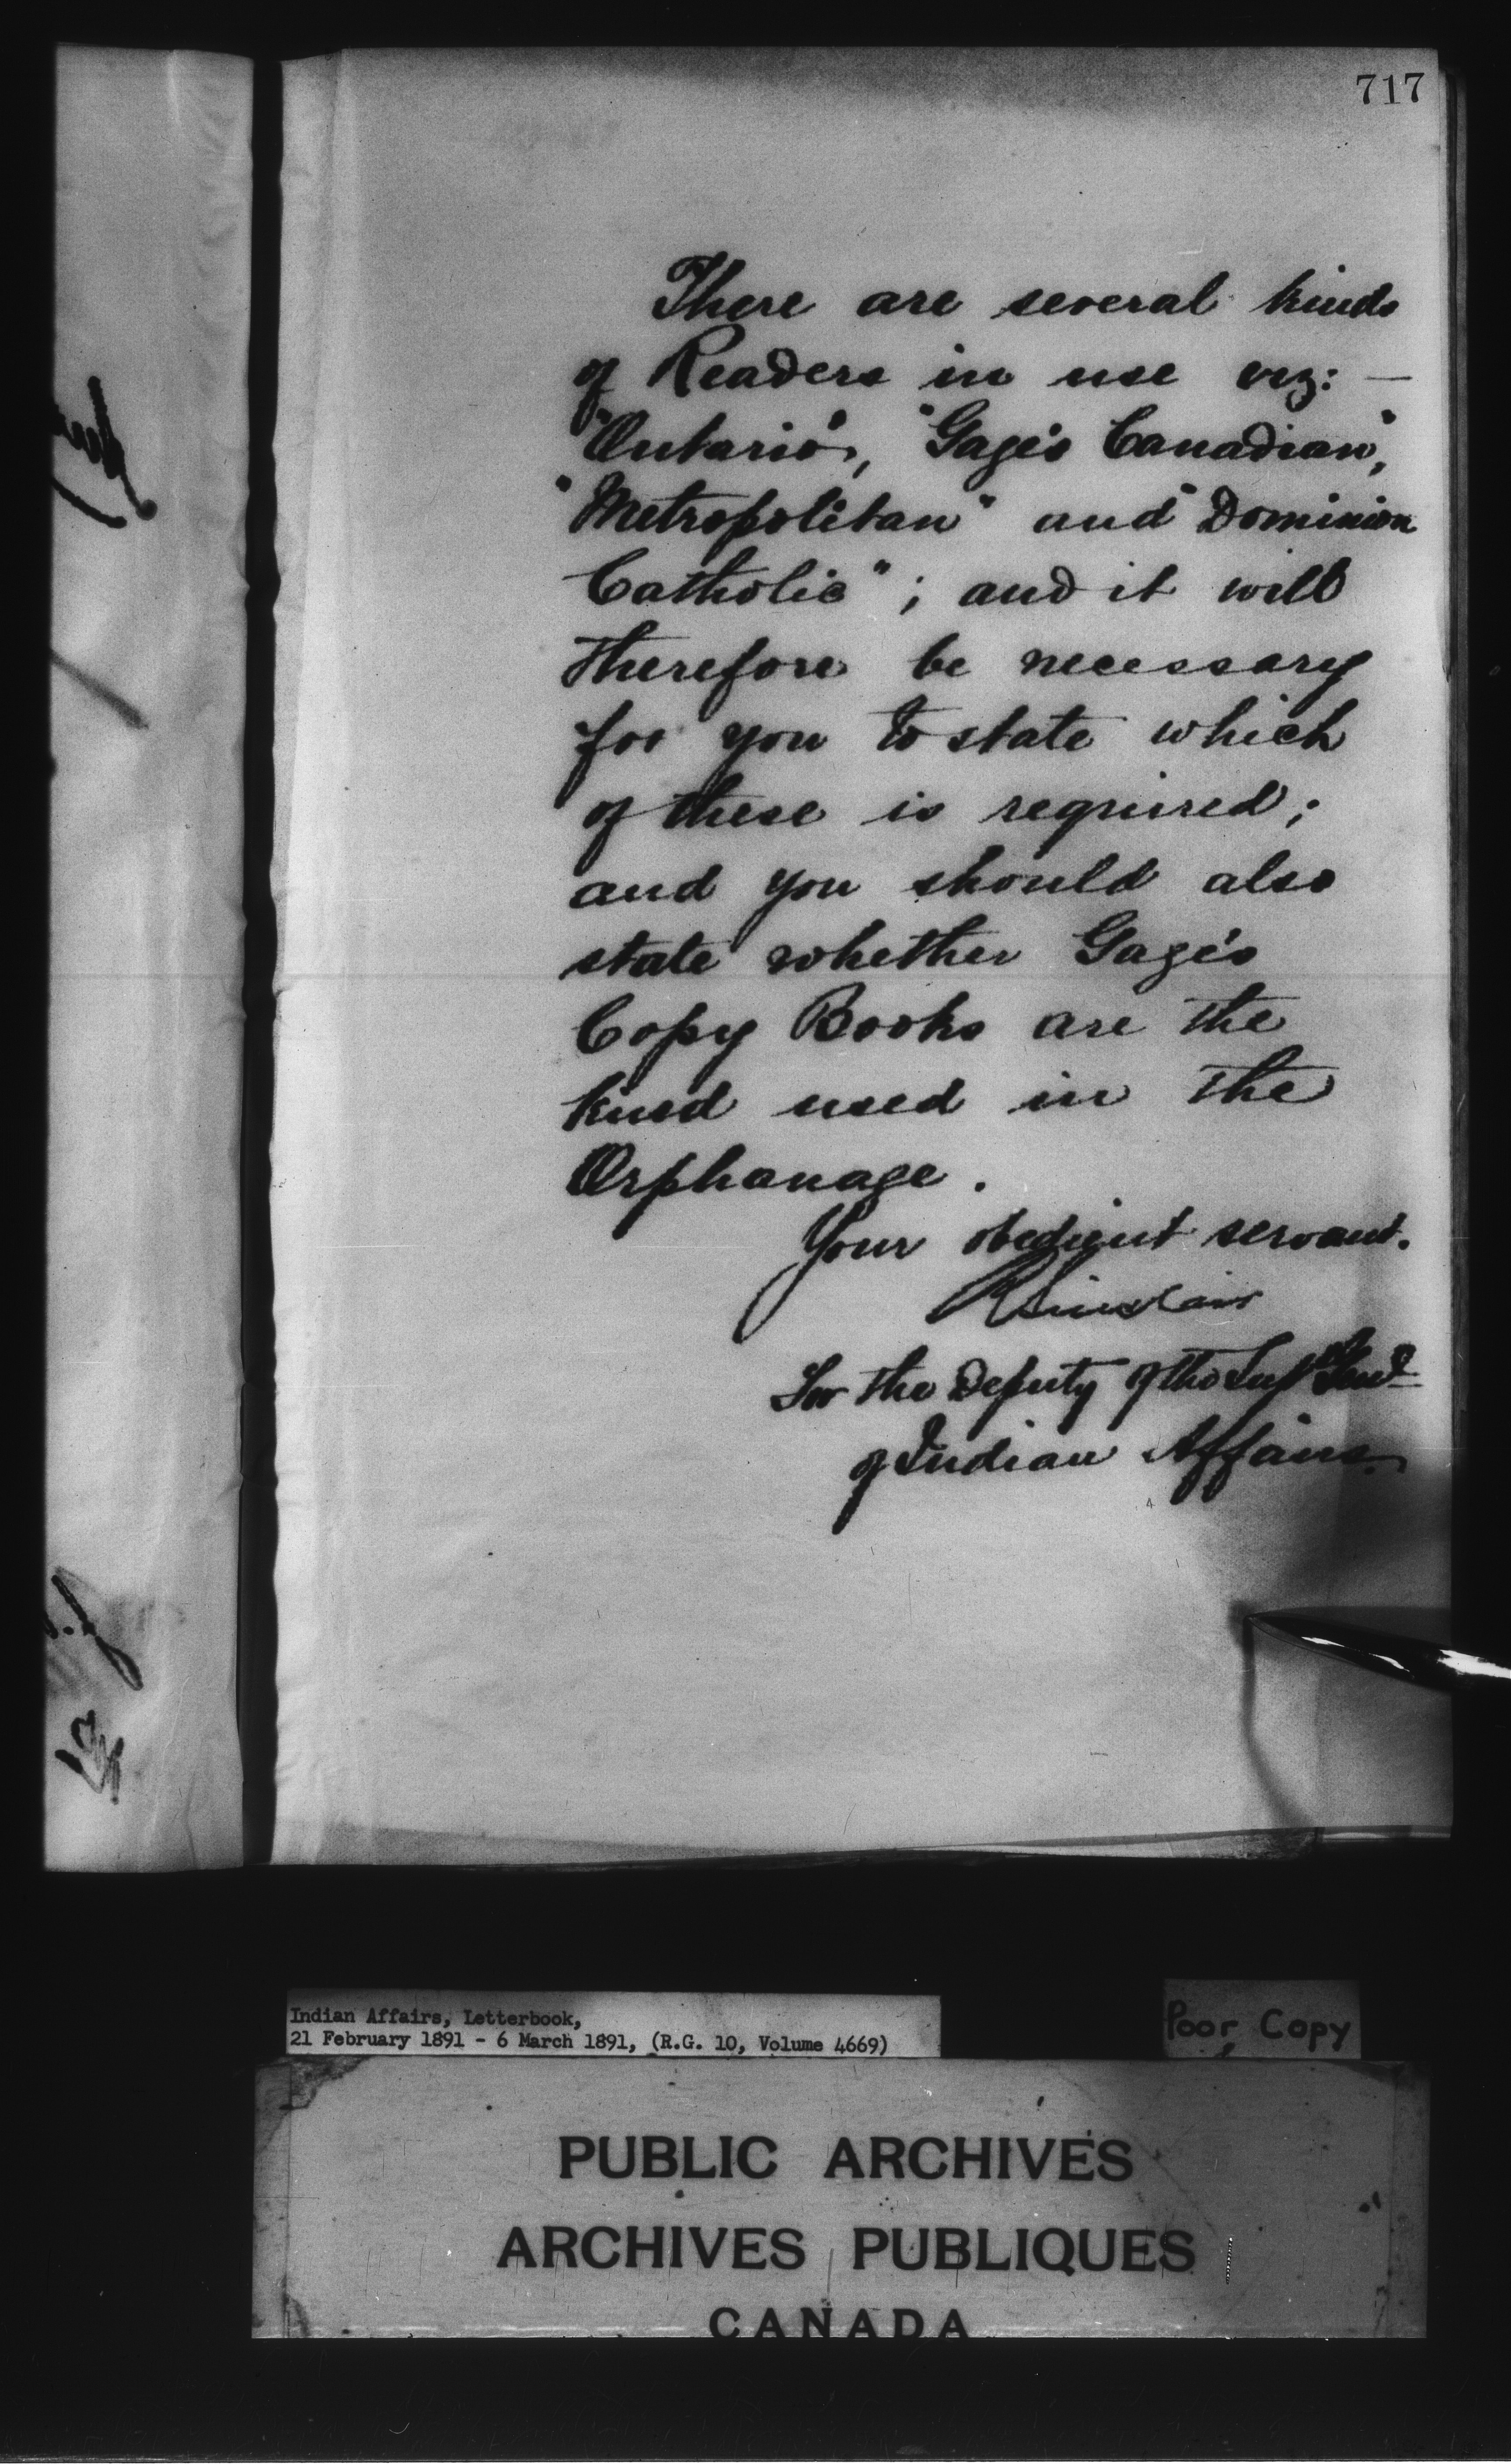 717
There are several kinds
of Readers in use viz: —
"Ontario", "Gage's Canadian",
"Metropolitan" and "Dominion
Catholic"; and it will
therefore be necessary
for you to state which
of these is required;
and you should also
state whether Gage's
Copy Books are the
kind used in the
Orphanage.
Your obedient servant.
R Sinclair
For the Deputy of the Supt Genl
of Indian Affairs.
Indian Affairs, Letterbook,
21 February 1891 - 6 March 1891, (R.G. 10, Volume 4669)
Poor Copy
PUBLIC ARCHIVES
ARCHIVES PUBLIQUES
CANADA